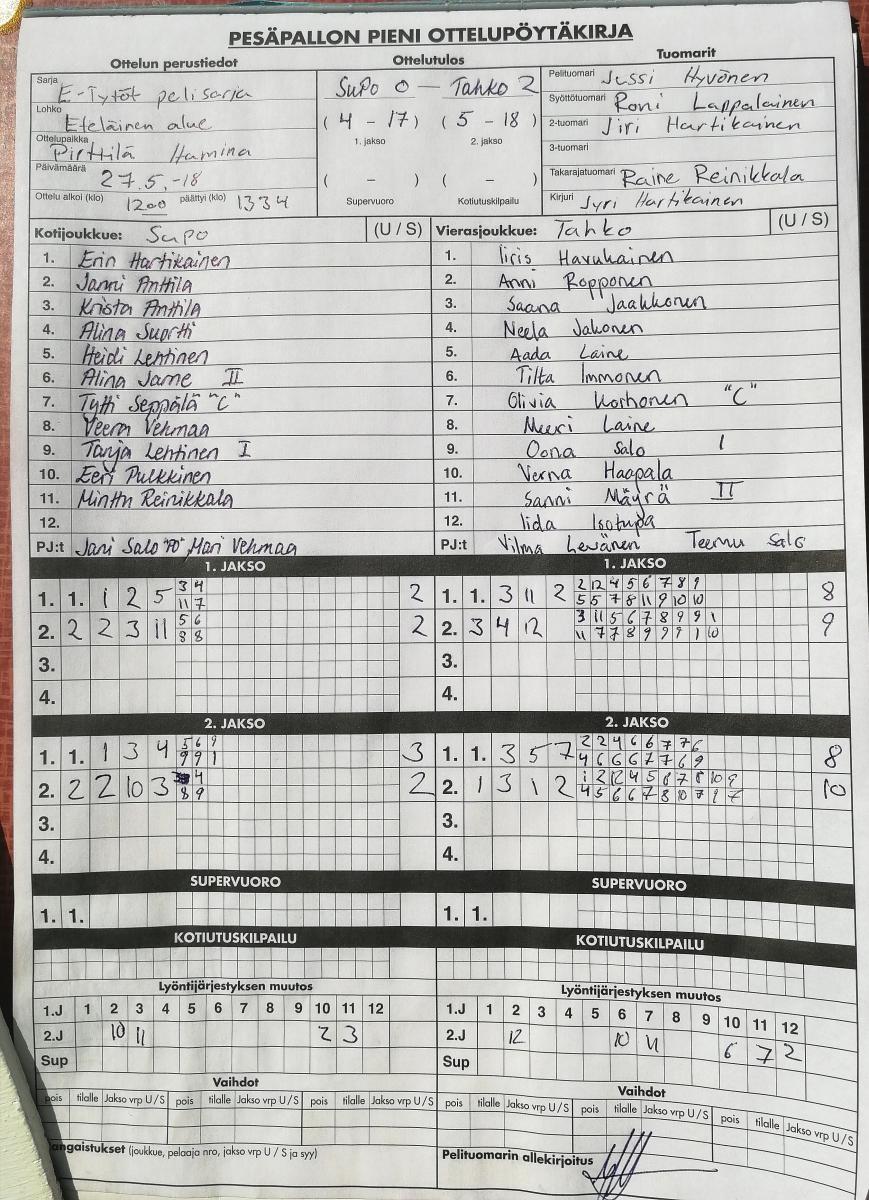 PESÄPALLON PIENI OTTELUPÖYTÄKIRJA
Ottelun perustiedot
Sarja E-Tytöt pelisarja
Lohko Eteläinen alue
Ottelupaikka Pirttilä Hamina
Päivämäärä 27.5.-18
Ottelu alkoi (klo) 1200 päättyi (klo) 1334
Ottelutulos
SuPo 0 – Tahko 2
( 4 - 17 ) ( 5 - 18 )
1. jakso 2. jakso
( - ) ( - )
Supervuoro Kotiutuskilpailu
Tuomarit
Pelituomari Jussi Hyvönen
Syöttötuomari Roni Lappalainen
2-tuomari Jiri Hartikainen
3-tuomari
Takarajatuomari Raine Reinikkala
Kirjuri Jyri Hartikainen
Kotijoukkue: SuPo (U / S)
1. Erin Hartikainen
2. Janni Anttila
3. Krista Anttila
4. Alina Suortti
5. Heidi Lehtinen
6. Alina Jame II
7. Tytti Seppälä "C"
8. Veera Vehmaa
9. Tanja Lehtinen I
10. Eeri Pulkkinen
11. Minttu Reinikkala
12.
PJ:t Jani Salo "PO" Mari Vehmaa
Vierasjoukkue: Tahko (U / S)
1. Iiris Havukainen
2. Anni Ropponen
3. Saana Jaakkonen
4. Neela Jakonen
5. Aada Laine
6. Tilta Immonen
7. Olivia Korhonen "C"
8. Meeri Laine
9. Oona Salo I
10. Verna Haapala
11. Sanni Mäyrä II
12. Iida Isotupa
PJ:t Vilma Levänen Teemu Salo
1. JAKSO
1. 1. 1 2 5 3 4 2
11 7
2. 2 2 3 11 5 6 2
8 8
3.
4.
1. JAKSO
1. 1. 3 11 2 2 12 4 5 6 7 8 9 8
5 5 7 8 11 9 10 10
2. 3 4 12 3 11 5 6 7 8 9 9 1 9
11 7 7 8 9 9 9 1 10
3.
4.
2. JAKSO
1. 1. 1 3 4 5 6 9 3
9 9 1
2. 2 2 10 3 4 2
8 9
3.
4.
2. JAKSO
1. 1. 3 5 7 2 2 4 6 6 7 7 6 8
4 6 6 6 7 7 6 9
2. 1 3 1 2 1 2 12 4 5 6 7 8 10 9 10
4 5 6 6 7 8 10 7 9 7
3.
4.
SUPERVUORO
1. 1.
SUPERVUORO
1. 1.
KOTIUTUSKILPAILU
KOTIUTUSKILPAILU
Lyöntijärjestyksen muutos
1.J 1 2 3 4 5 6 7 8 9 10 11 12
2.J 10 11 2 3
Sup
Lyöntijärjestyksen muutos
1.J 1 2 3 4 5 6 7 8 9 10 11 12
2.J 12 10 11 6 7 2
Sup
Vaihdot
pois tilalle Jakso vrp U / S pois tilalle Jakso vrp U / S pois tilalle Jakso vrp U / S
Vaihdot
pois tilalle Jakso vrp U / S pois tilalle Jakso vrp U / S pois tilalle Jakso vrp U / S
angaistukset (joukkue, pelaaja nro, jakso vrp U / S ja syy)
Pelituomarin allekirjoitus